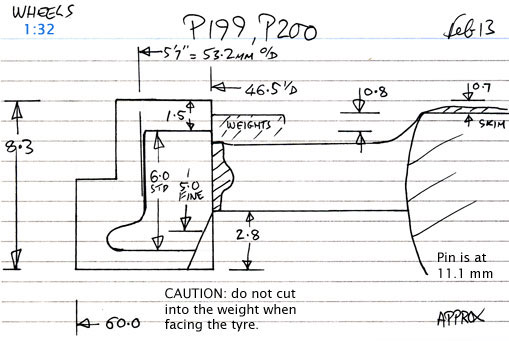 WHEELS
1:32
P199, P200
Feb 13
5'7" = 53.2MM O/D
46.5 I/D
0.8
0.7
1.5
WEIGHTS
SKIM
8.3
6.0
STD
5.0
FINE
2.8
Pin is at
11.1 mm
CAUTION: do not cut
into the weight when
facing the tyre.
60.0
APPROX